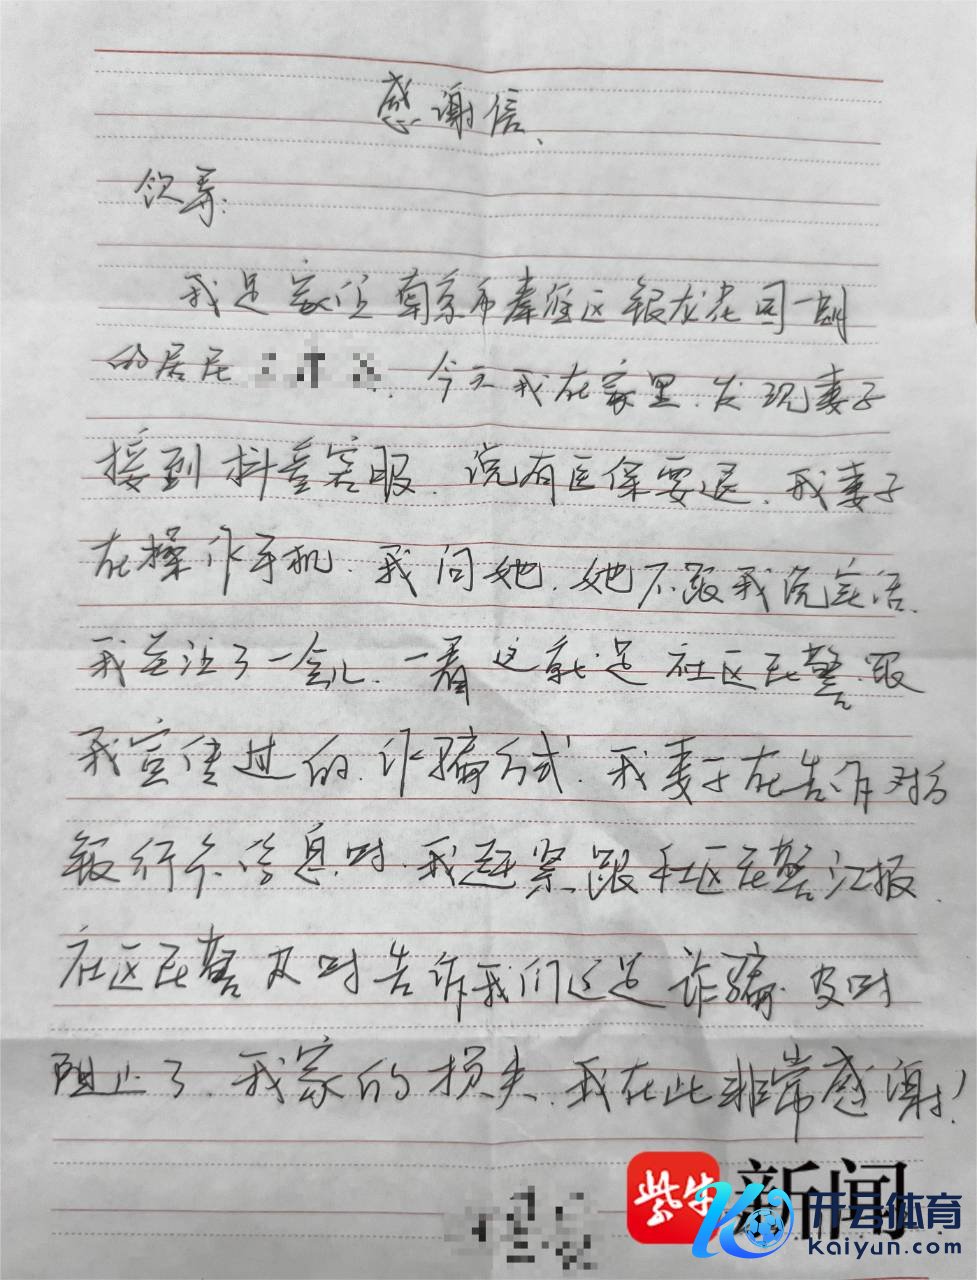 感谢信、
饮弄:
我是家住南京市秦淮区银龙花园一期
的居民 今天我在家里.发现妻子
接到抖音客服.说有医保要退.我妻子
在操作手机.我问她.她不跟我说实话.
我关注了一会儿.一看这就是社区民警跟
我宣传过的.诈骗方式.我妻子在告诉对方
银行卡信息时.我赶紧跟社区民警汇报.
社区民警及时告诉我们这是诈骗.及时
阻止了.我家的损失.我在此非常感谢!
紫牛新闻
开云体育
kaiyun.com